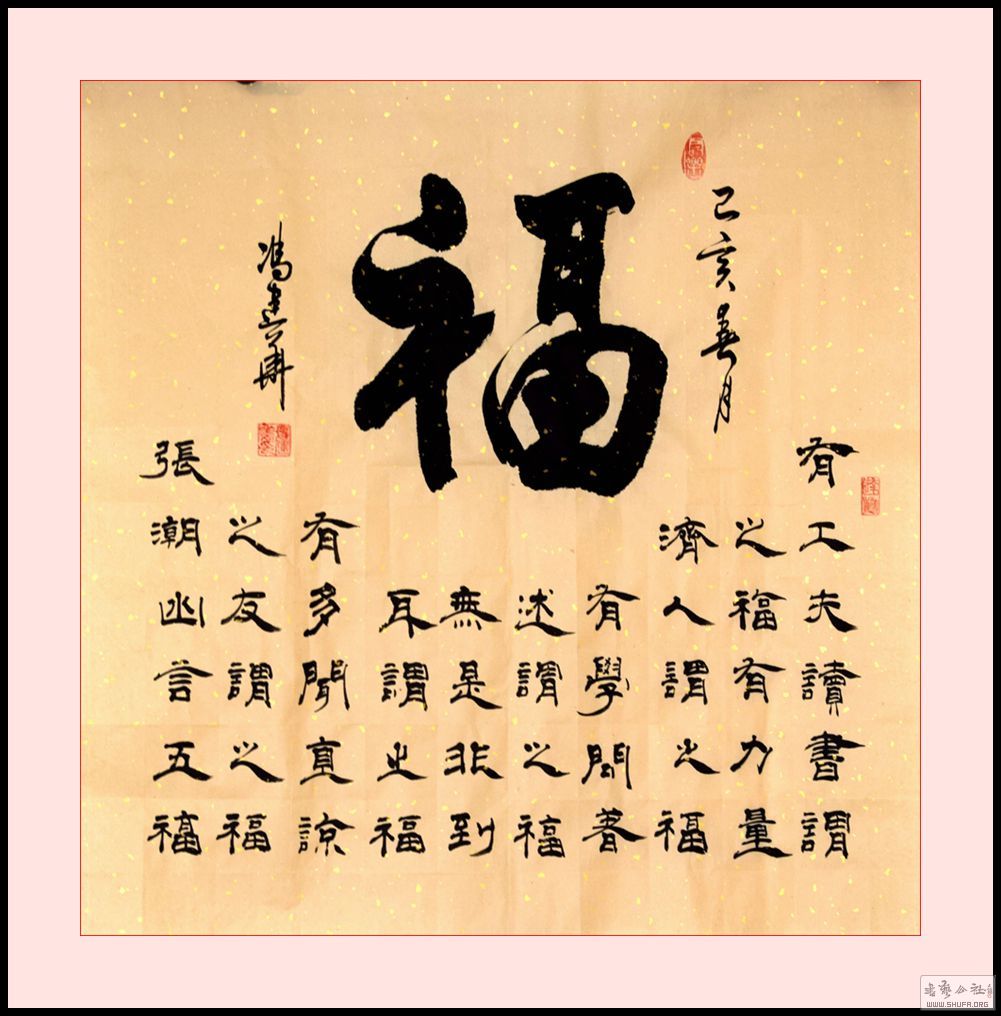 己亥春月
福
馮
有工夫讀書謂
之福有力量
濟人謂之福
有學問著
述謂之福
無是非到
耳謂之福
有多聞直諒
之友謂之福
張潮幽言五福
WWW.SHUFA.ORG